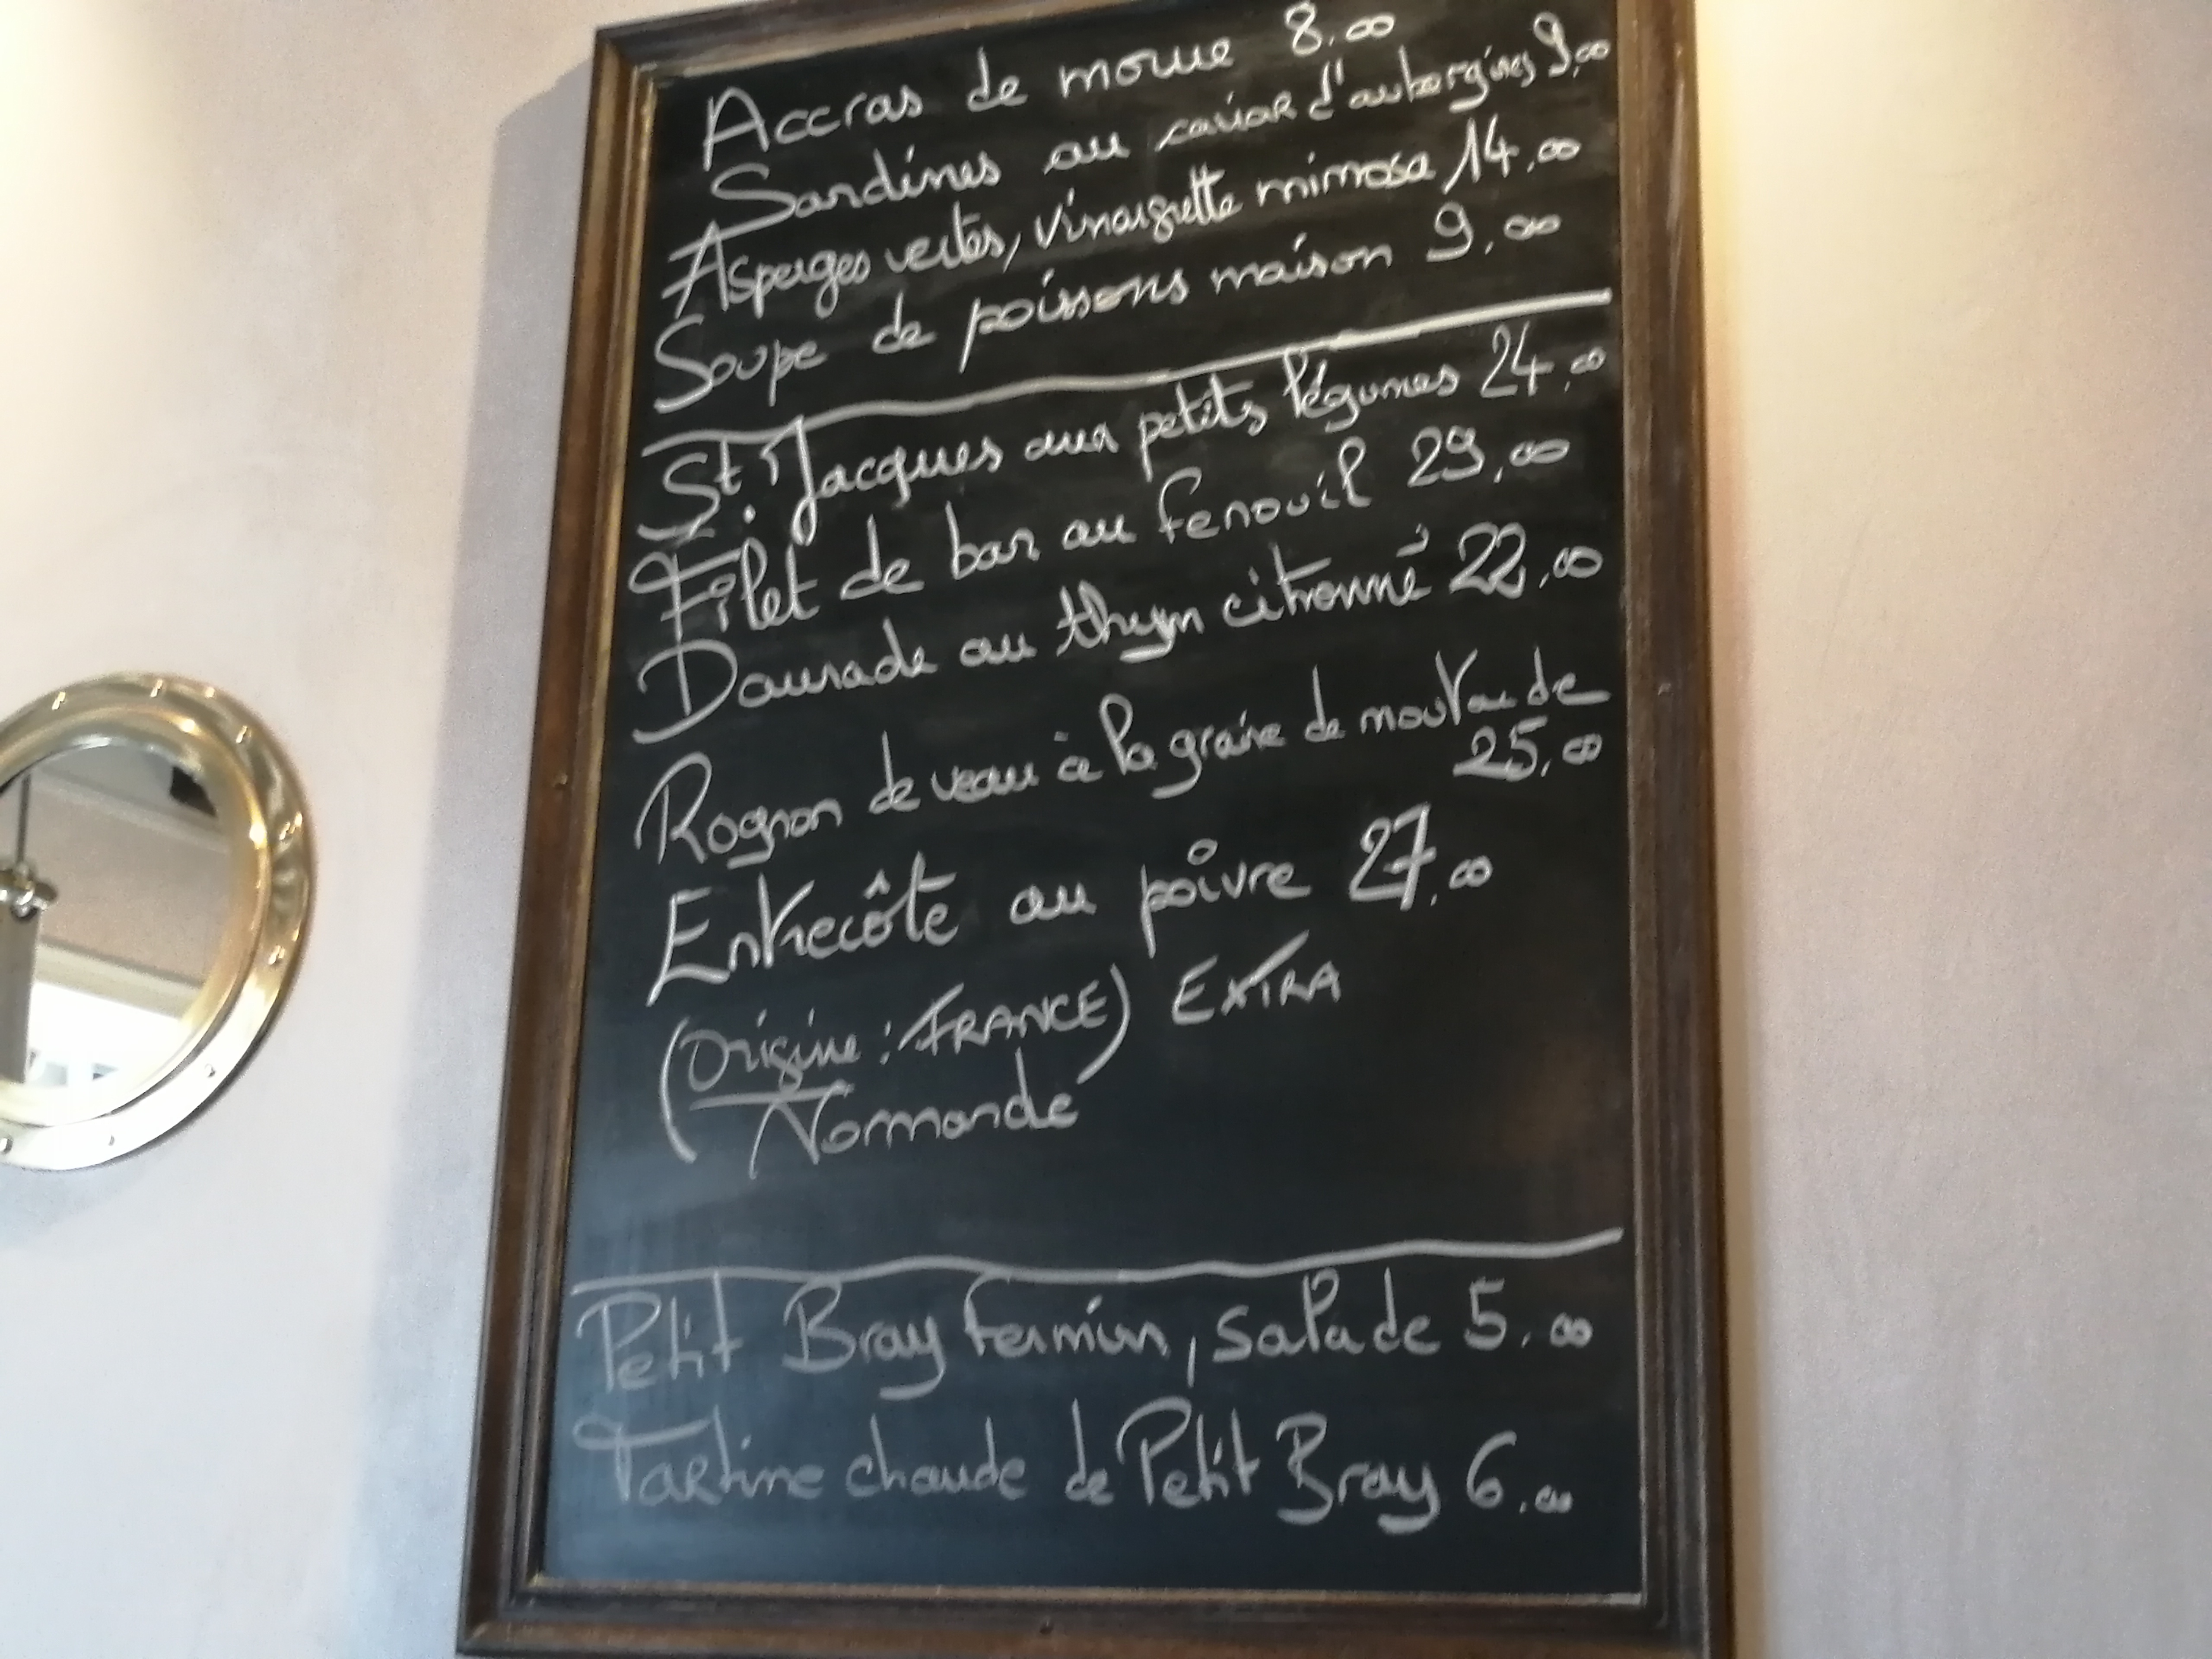 Accras de morue 8.00
Sardines au caviar d'aubergines 9.00
Asperges vertes, vinaigrette mimosa 14.00
Soupe de poissons maison 9.00
St. Jacques aux petits légumes 24.00
Filet de bar au fenouil 29.00
Daurade au thym citronné 22.00
Rognon de veau à la graine de moutarde
25.00
Entrecôte au poivre 27.00
(Origine : FRANCE) EXTRA
Normande
Petit Bray fermier, salade 5.00
Tartine chaude de Petit Bray 6.00